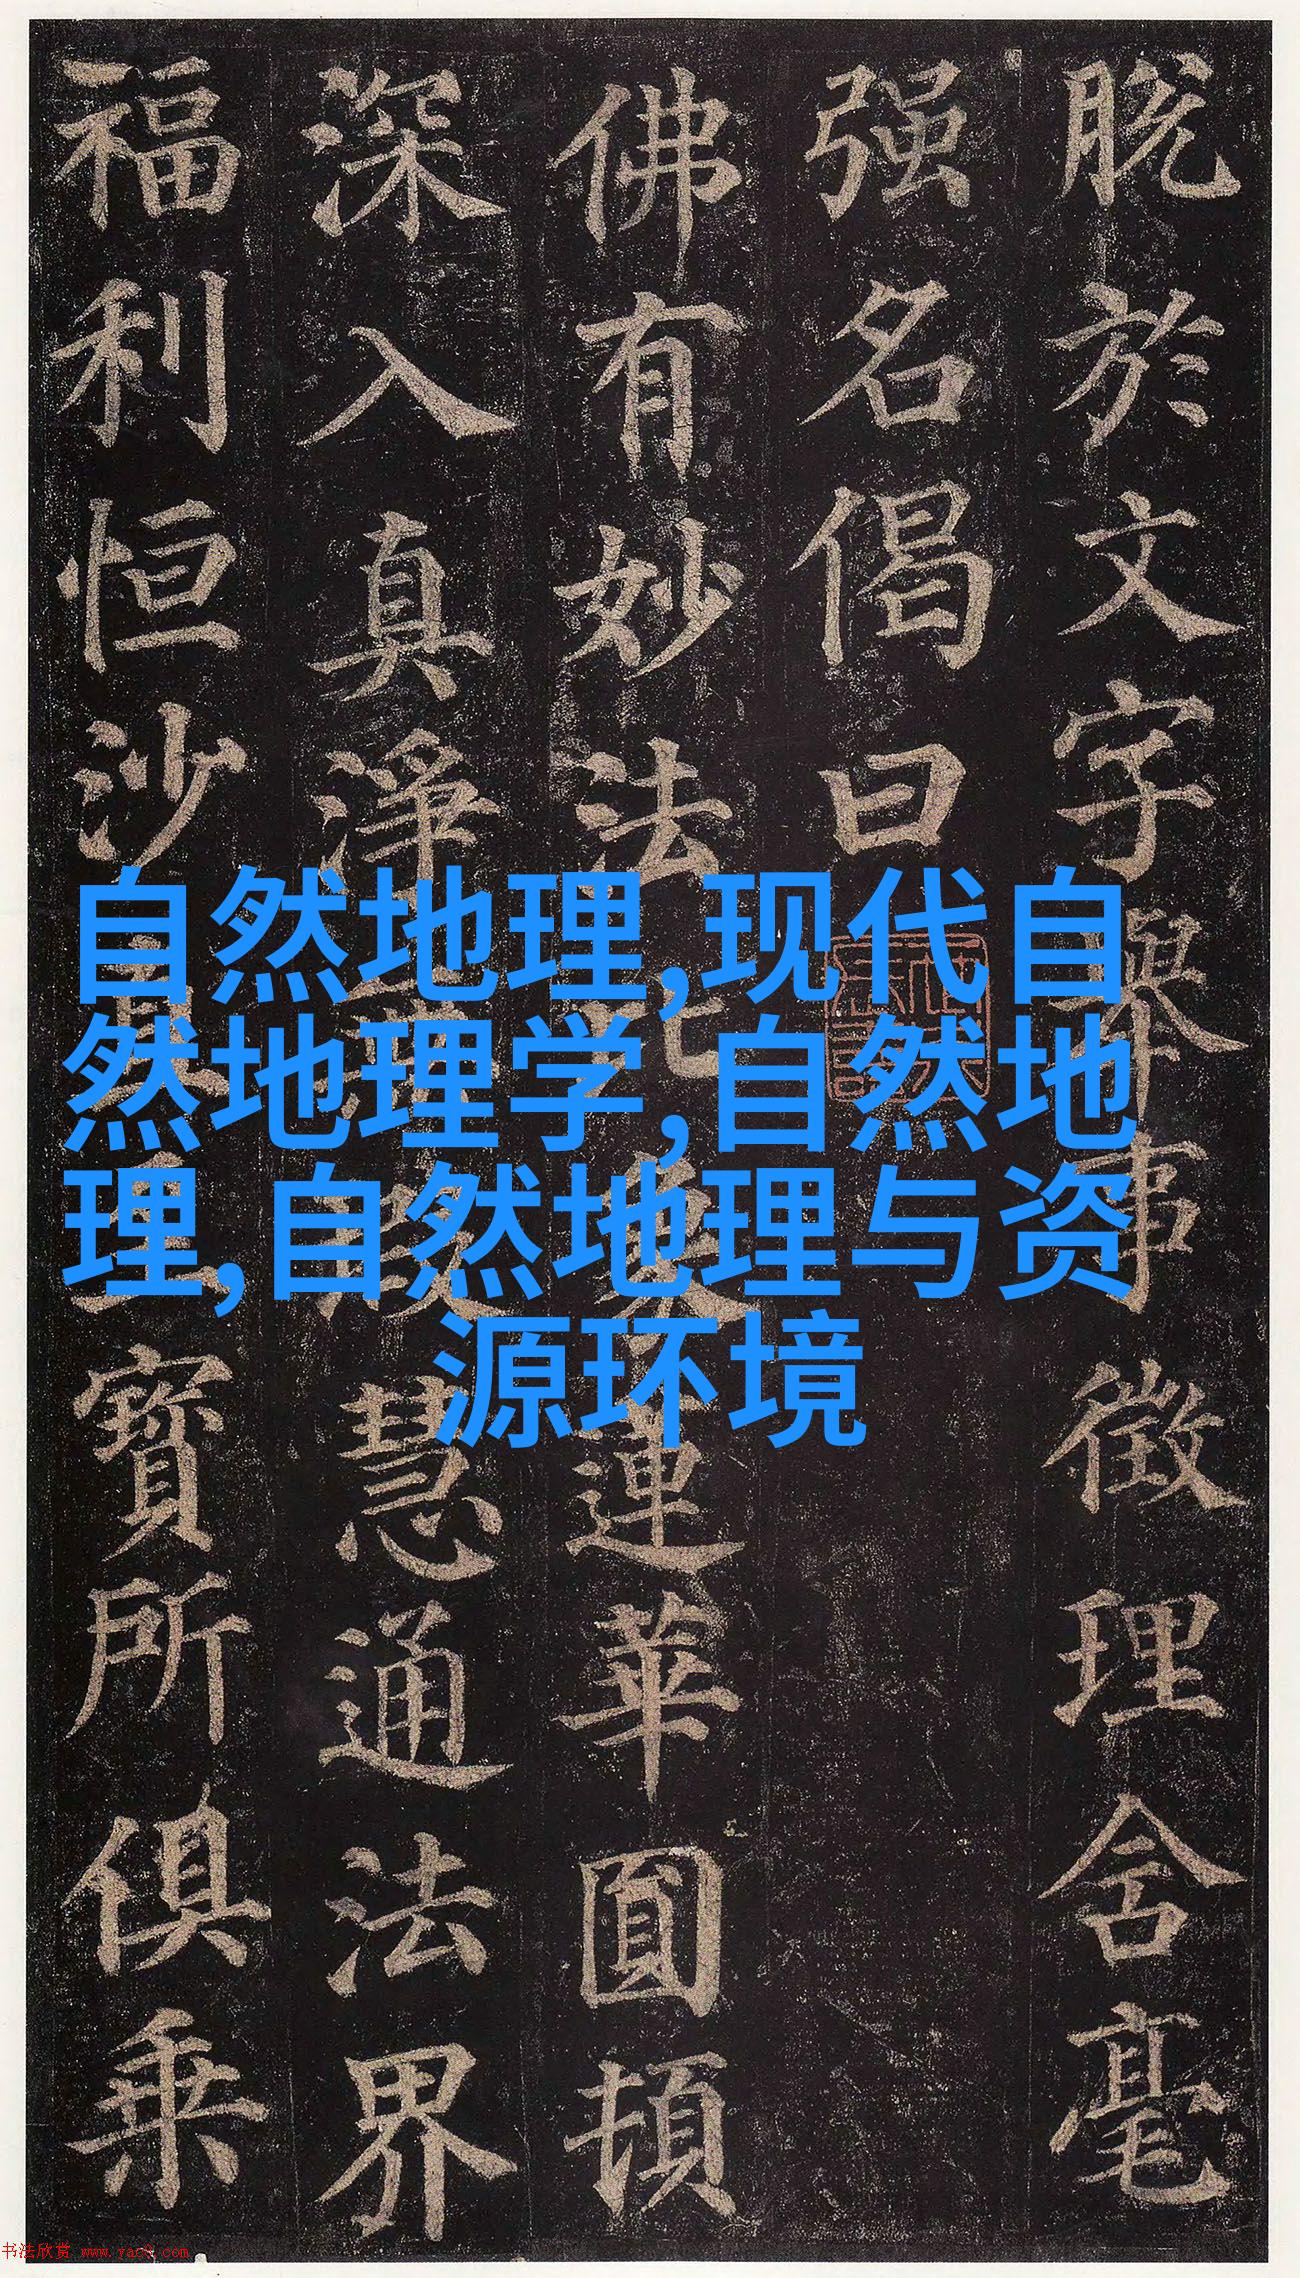 脱於文字舉事徵理含毫
强名偈曰
佛有妙法比象蓮華圓頓
深入真淨無瑕慧通法界
福利恒沙直至寶所俱乘
自然地理,现代自
然地理学,自然地
理,自然地理与资
源环境
书法欣赏 www.yac8.com